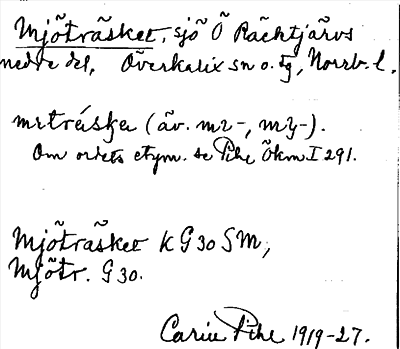 Mjöträsket, sjö Ö Räcktjärvs
nedre del, Överkalix sn o. tg, Norrb. l.
mıtrásʄa (äv. mı-, my-).
Om ordets etym. se Pihl Ökm I 291.
Mjöträsket K G30 SM;
Mjötr. G30.
Carin Pihl 1919-27.